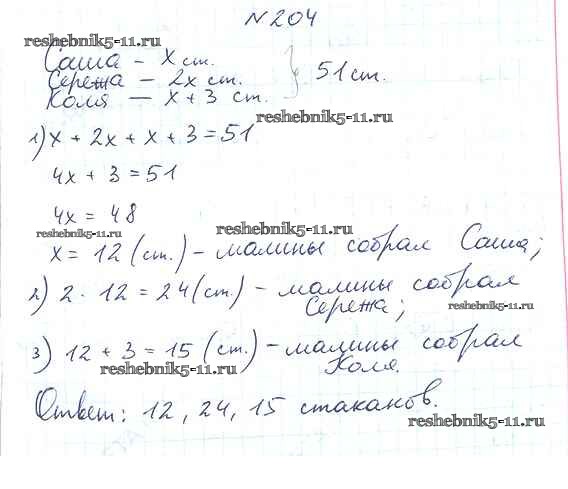 № 204
reshebnik5-11.ru
Саша - x ст.
Сережа - 2x ст. } 51 ст.
Коля - x + 3 ст.
reshebnik5-11.ru
1) x + 2x + x + 3 = 51
4x + 3 = 51
4x = 48
reshebnik5-11.ru
reshebnik5-11.ru
x = 12 (ст.) - малины собрал Саша;
2) 2 · 12 = 24 (ст.) - малины собрал
reshebnik5-11.ru
Сережа;
3) 12 + 3 = 15 (ст.) - малины собрал
reshebnik5-11.ru
Коля.
Ответ: 12, 24, 15 стаканов.
reshebnik5-11.ru